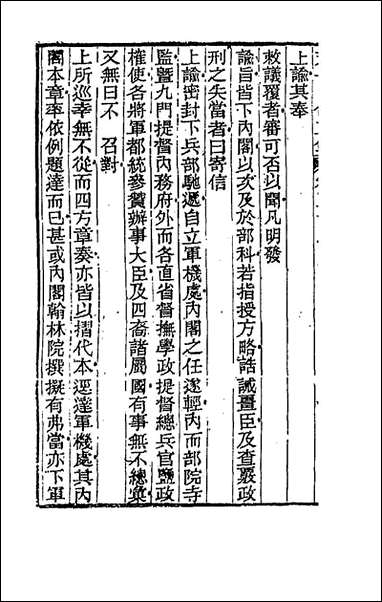 上諭其奉
敕議覆者審可否以聞凡明發
諭旨皆下內閣以次及於部科若指授方略誥誡疆臣及查覈政
刑之失當者曰寄信
上諭密封下兵部馳遞自立軍機處內閣之任遂輕內而部院寺
監暨九門提督內務府外而各直省督撫學政提督總兵官鹽政
榷使各將軍都統參贊辦事大臣及四裔諸屬國有事無不總彙
又無日不 召對
上所巡幸無不從而四方章奏亦皆以摺代本逕達軍機處其內
閣本章率依例題達而已甚或內閣翰林院撰擬有弗當亦下軍